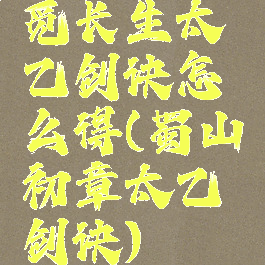 觅长生太
乙剑诀怎
么得(蜀山
初章太乙
剑诀)